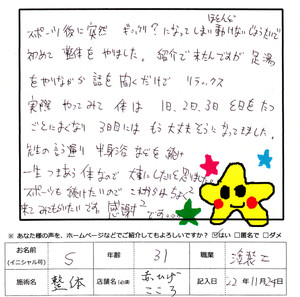 スポーツ後に突然 ギックリ?になってしまい動けない じょうたいで
ほとんど
初めて 整体を やりました。 紹介で 来たんですが 足湯
をやりながら 話を 聞くだけで リラックス
実際 やってみて 体は 1日、2日、3日 と日をたつ
ごとによくなり 3日目には もう 大丈夫そうになってました。
先生の言う通り 半身浴 などを 続け
一生つきあう 体なので 大事にしたいと思いました。
スポーツも 続けたいので これからもちょくちょく
来てみてもらいたいです 感謝です
※ あなた様の声を、ホームページなどでご紹介してもよろしいですか? ☑はい □匿名で □ダメ
お名前 (イニシャル可) S 年齢 31 職業 塗装工
施術名 整体 店舗名(必須) 赤ひげ こころ 記入日 22年 11月24日